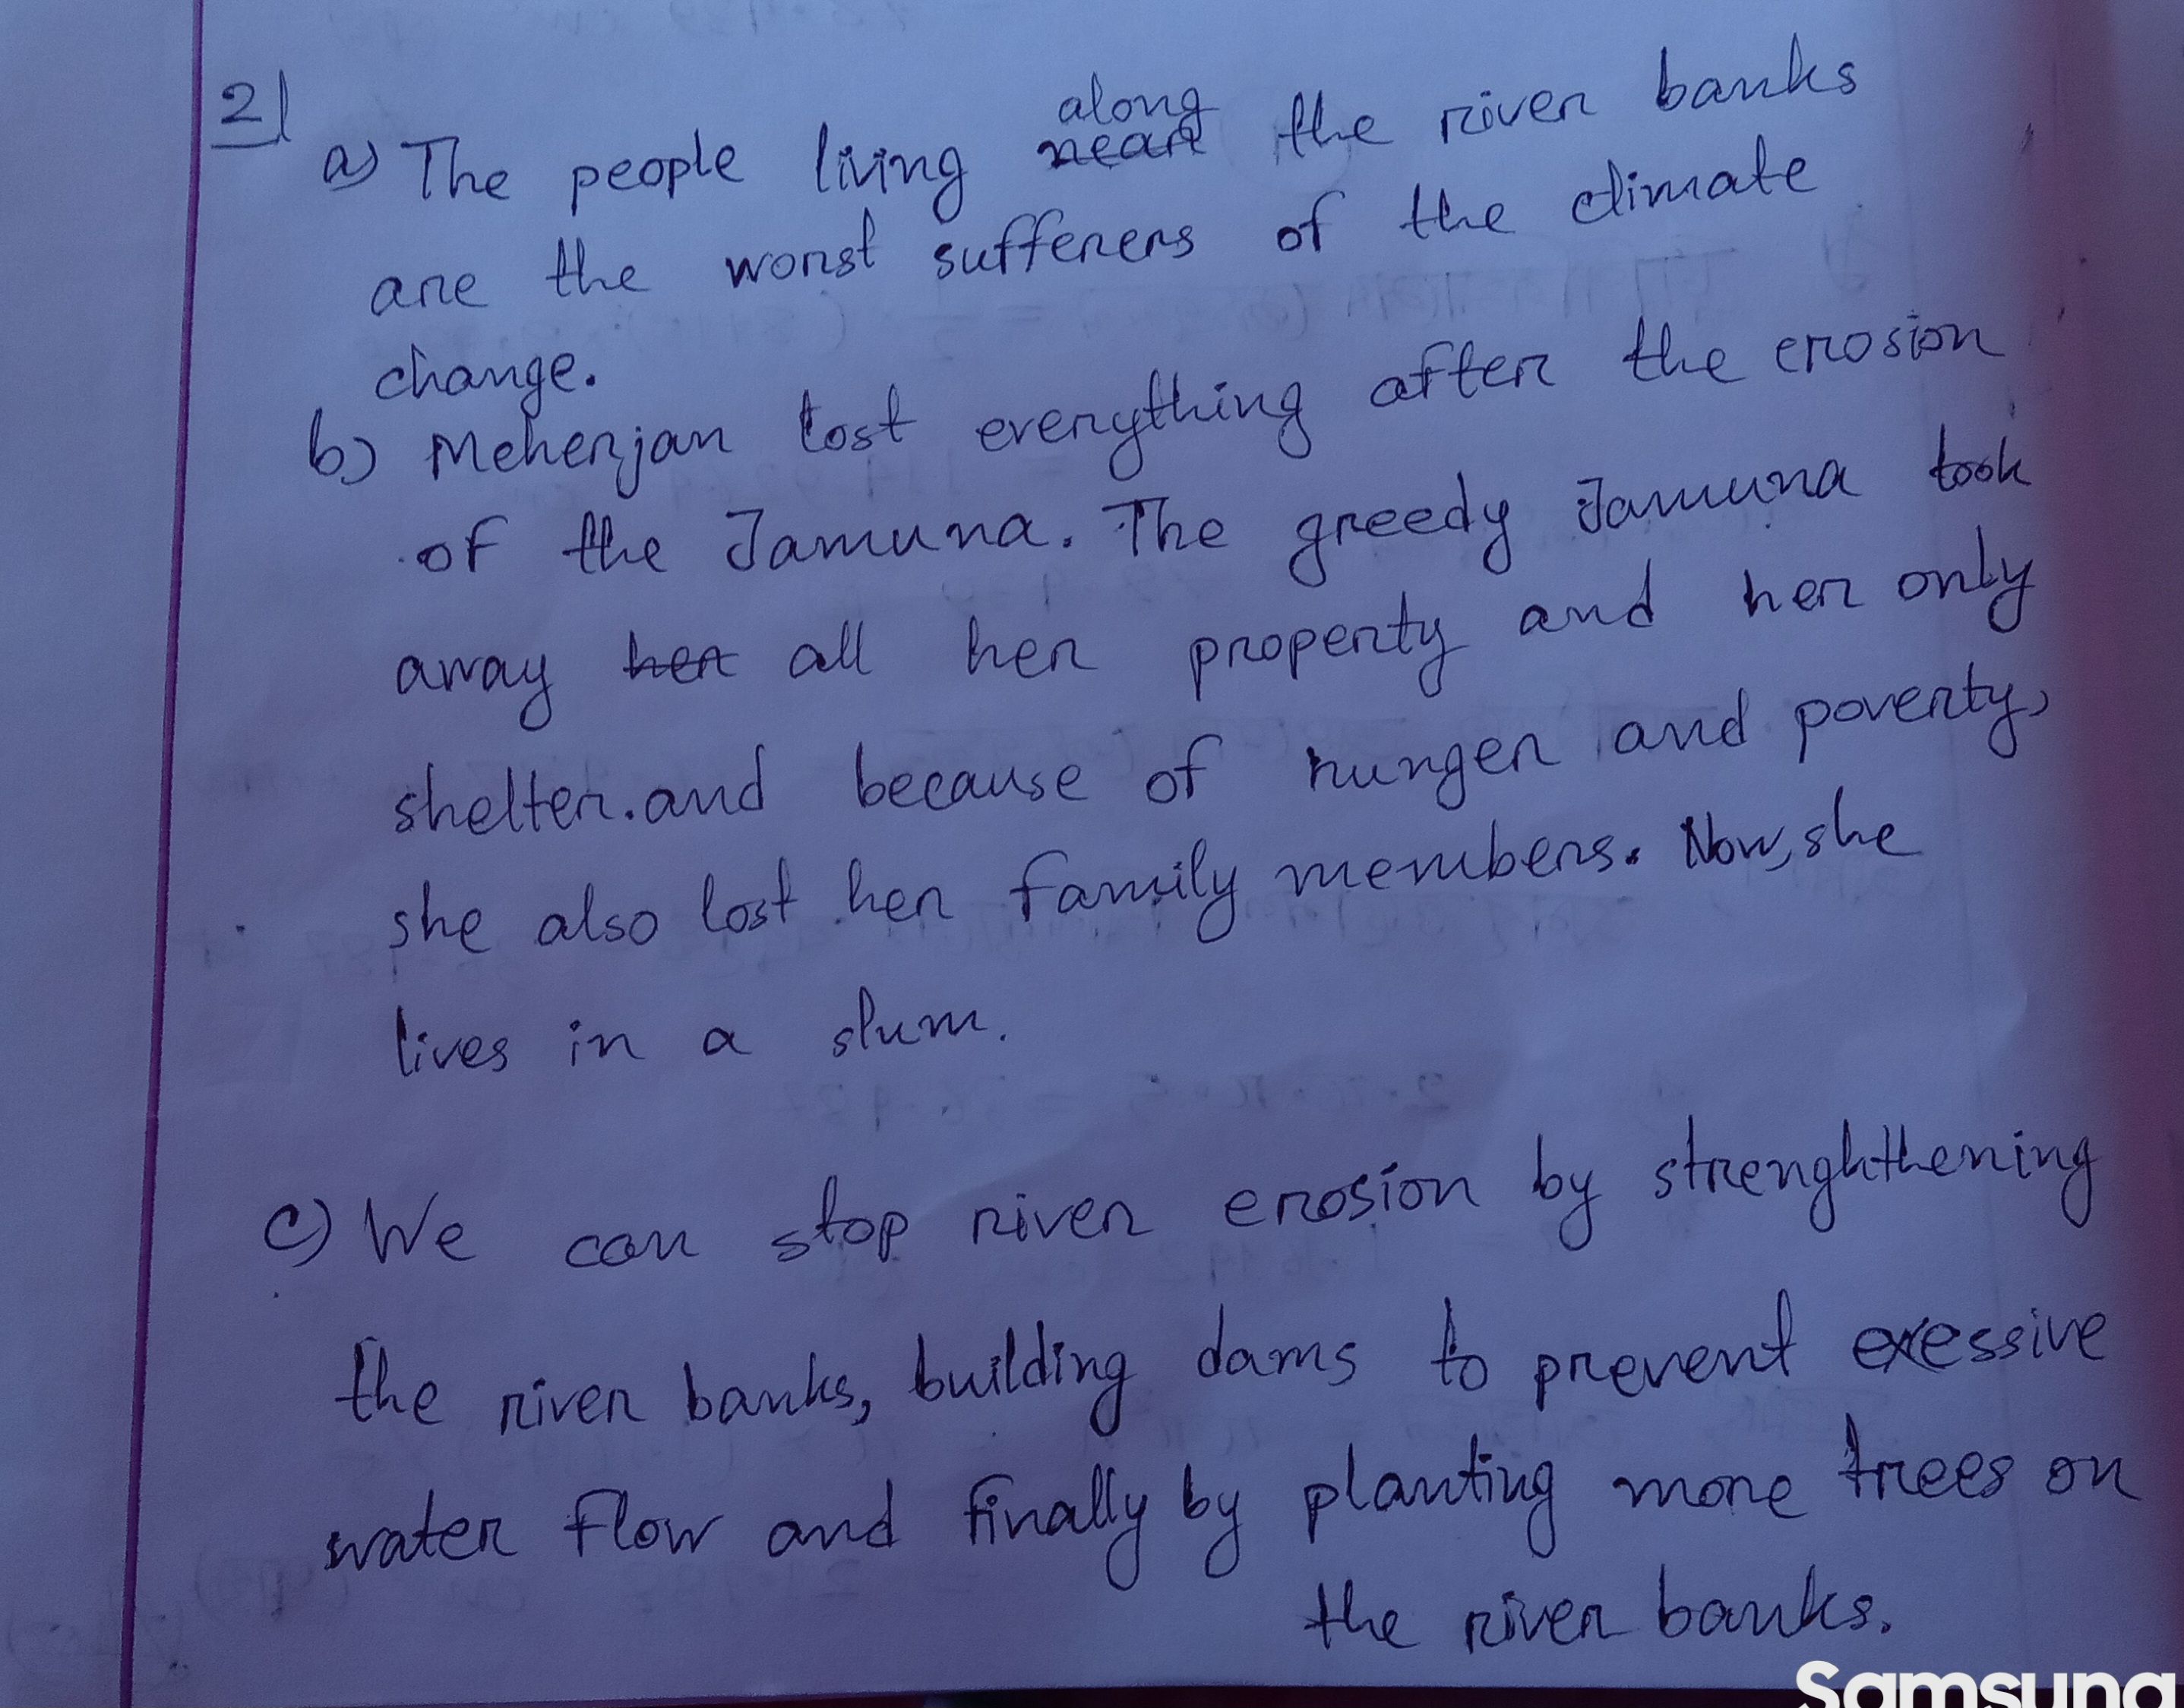 2)
a) The people living near along the river banks
are the worst sufferers of the climate
change.
b) Meherjan lost everything after the erosion
of the Jamuna. The greedy Jamuna took
away her all her property and her only
shelter. and because of hunger and poverty,
she also lost her family members. Now, she
lives in a slum.
c) We can stop river erosion by strenghthening
the river banks, building dams to prevent exessive
water flow and finally by planting more trees on
the river banks.
Samsung